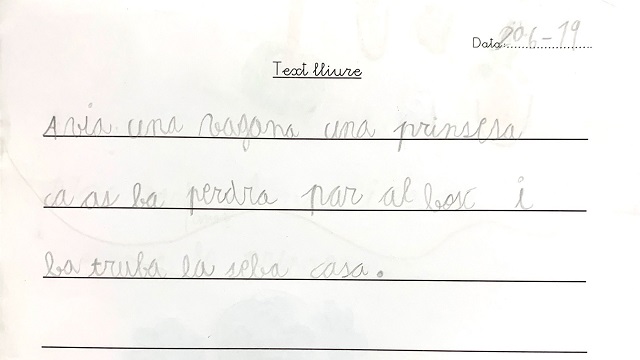 Data: 20-6-19
Text lliure
Avia una vagana una prinsesa
ca as ba perdra par al bosc i
ba truba la seba casa.